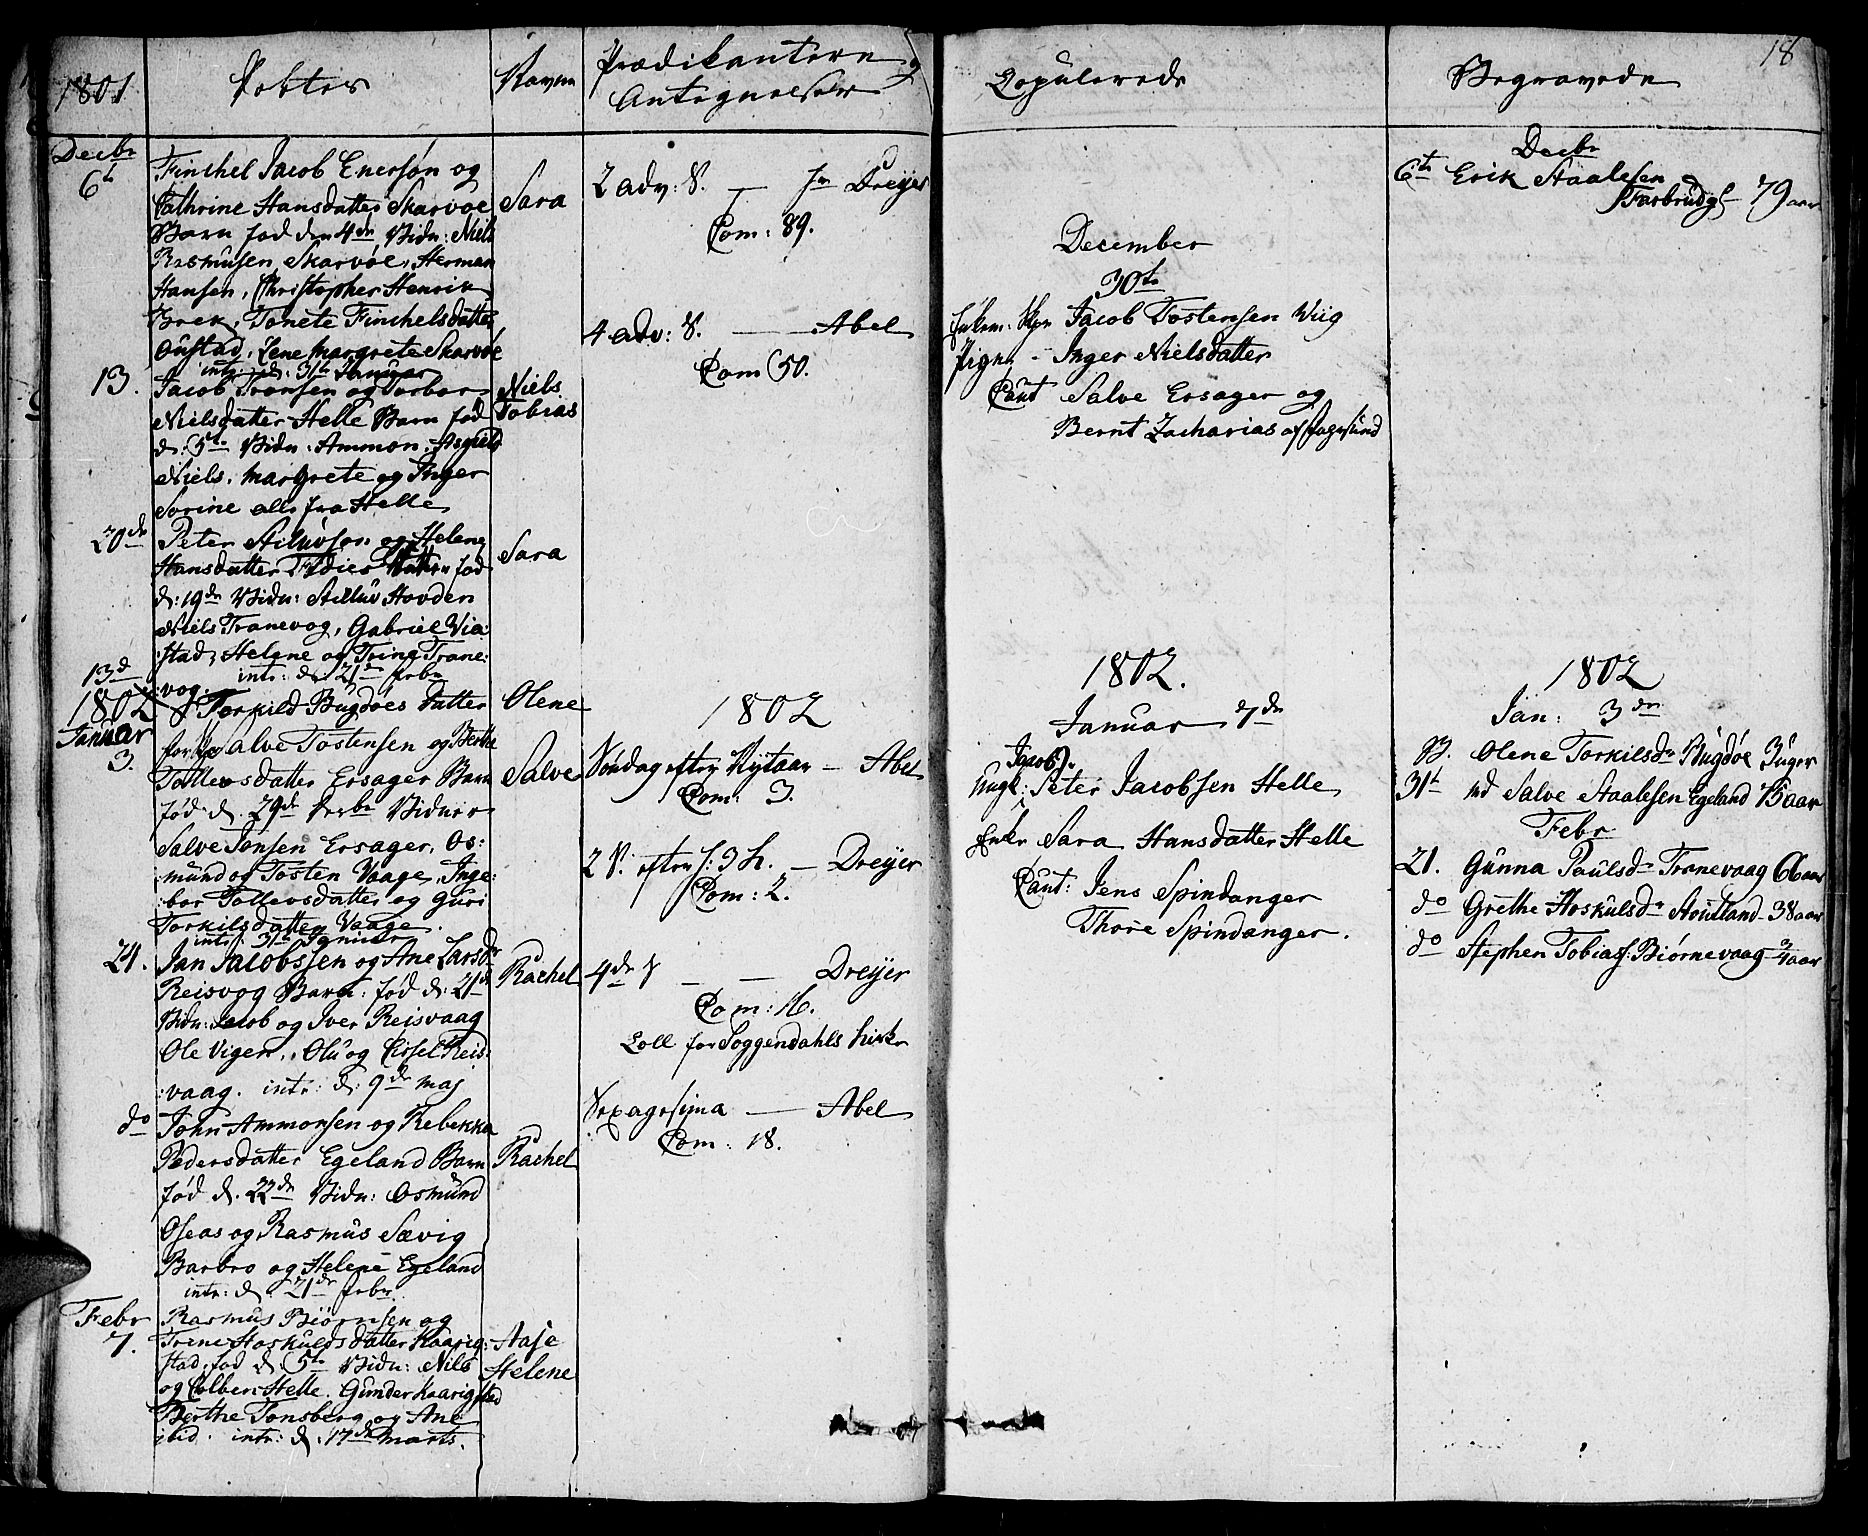 1801
Døbte
Navne
Prædikantere
Antegnelser
Decbr
6t
Finchel Jacob Enersøn og
Cathrine Hansdatter Skarvøe
Barn fød den 4de Vidn: Niels
Rasmusen Skarvøe, Herman
Hansen, Christopher Henrik
Brek, Tonete Finchelsdatter
Oustad, Lene Margrete Skarvøe
intr: d: 31te Januar
Sara
13.
Jacob Tronsen og Torbor
Nielsdatter Helle Barn fød
d: 5te Vidn: Ammon, Asgiels
Niels, Margrete og Inger
Sorine alle fra Helle
Niels
Tobias
20de
Peter Stiluvson og Helene
Hansdatter datter fød
d: 19de Vidn: Stilluv Hovden
Niels Tranevog, Gabriel Via:
:stad, Helene og Trine Trane:
intr: d: 21de febr
:vog.
Sara
13d
Torkild Bugdøes datter
Olene
1802
Januar
3.
Salve Tostensen og Berthe
Tollevsdatter Ersager Barn
fød d. 29de Decbr Vidner
Salve Jonsen Ersager, Os:
mund og Tosten Vaage, Inge:
:bor Tollevsdatter og Guri
Torkilsdatter Vaage.
intr: 31te Januar
Salve
24.
Jan Jacobssen og Ane Larsdr
Reisvog Barn: fød d: 21de
Vidn: Jacob og Iver Reisvaag
Ole Vigen, Olu og Cissel Reis:
:vaag. intr: d: 9de Maj
Rachel
do
John Ammonsen og Rebekka
Pedersdatter Egeland Barn
fød d. 22de Vidn: Osmund
Oseas og Rasmus Sævig
Barbro og Helene Egeland
intr: d. 21de febr.
Rachel
Febr
7.
Rasmus Biørnsen og
Trine Hoskuldsdatter Kaarig:
stad, fød d. 5te Vidn: Nils
og Colben Helle. Gunder Kaarigsted
Berthe Tonsberg og Ane
ibid. intr: d. 17de Marts.
Aase
Helene
2 adv: S. — Dreyer
Com: 89.
4 adv: S. — Abel
Com 50.
1802
Søndag efter Nytaar — Abel
Com: 3.
2 S. efter h. 3 K. — Dreyer
Com: 2.
4de S — Dreyer
Com: 16.
Coll for Soggendahls Kirke
Sexagesima — Abel
Com: 18.
Copulerede
December
30te
Enkem. Jacob Tostensen Viig
Pige — Inger Nielsdatter
Caut Salve Ersager og
Bernt Zacharias af Jøgesund
1802.
Januar 7de
Jacob
Ungk: Peter Jacobsen Helle
Enke Sara Hansdatter Helle
Caut: Jens Spindanger
Thore Spindanger.
Begravede
18
Decbr
6te Erik Staalesen
Farbrudg — 79 aar
1802
Jan: 3die
B. Olene Torkilsdr Bugdøe 3 uger
31te Salve Staalesen Egeland 75 aar
Febr
21. Gunna Paulsdr Tranevaag 66 aar
do Grethe Hoskulsdr Stoutland 38 aar
do Stephen Tobiass: Biørnevaag 3/4 aar